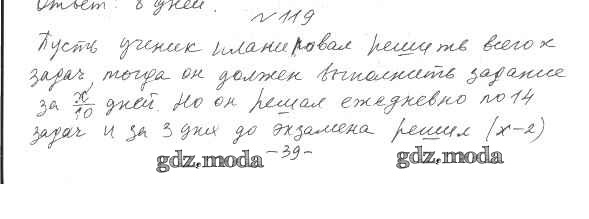 Ответ: 8 дней.
№ 119
Пусть ученик планировал решить всего x
задач, тогда он должен выполнить задание
за x/10 дней. Но он решал ежедневно по 14
задач и за 3 дня до экзамена решил (x-2)
gdz.moda -39- gdz.moda